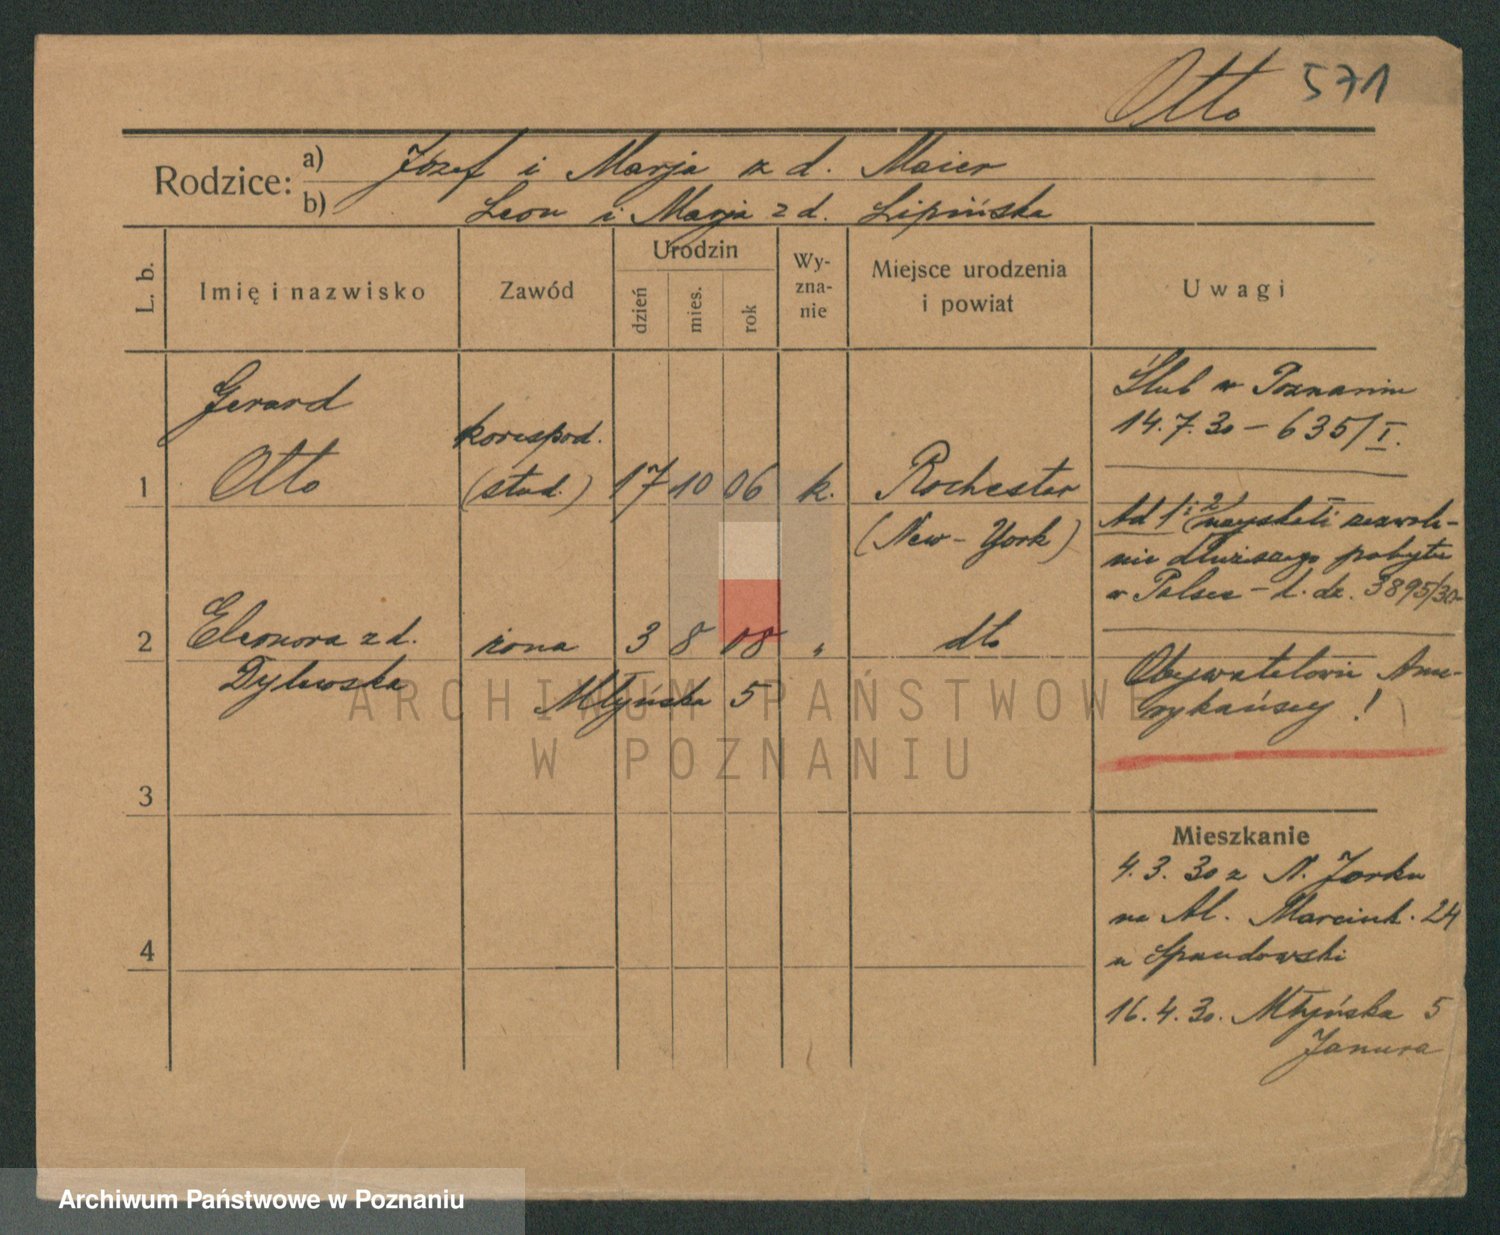 Otto 571
Rodzice: a) Józef i Marja z d. Maier
b) Leon i Marja z d. Lipińska
L. b.
Imię i nazwisko
Zawód
Urodzin
dzień
mies.
rok
Wy-
zna-
nie
Miejsce urodzenia
i powiat
Uwagi
Gerard
1 Otto
korespod.
(stud.)
17 10 06 k. Rochester
(New-York)
2 Eleonora z d.
Dylewska
żona 3 8 08 " dto
Młyńska 5
3
4
Ślub w Poznaniu
14.7.30 – 635/I.
Ad 1 i 2 uzyskali zezwole-
nie dłuższego pobytu
w Polsce – l. dz. 3895/30
Obywatelowie Ame-
rykańscy!
Mieszkanie
4.3.30 z N. Jorku
na Al. Marcink. 24
u Spandowski
16.4.30. Młyńska 5
Janura
ARCHIWUM PAŃSTWOWE
W POZNANIU
Archiwum Państwowe w Poznaniu